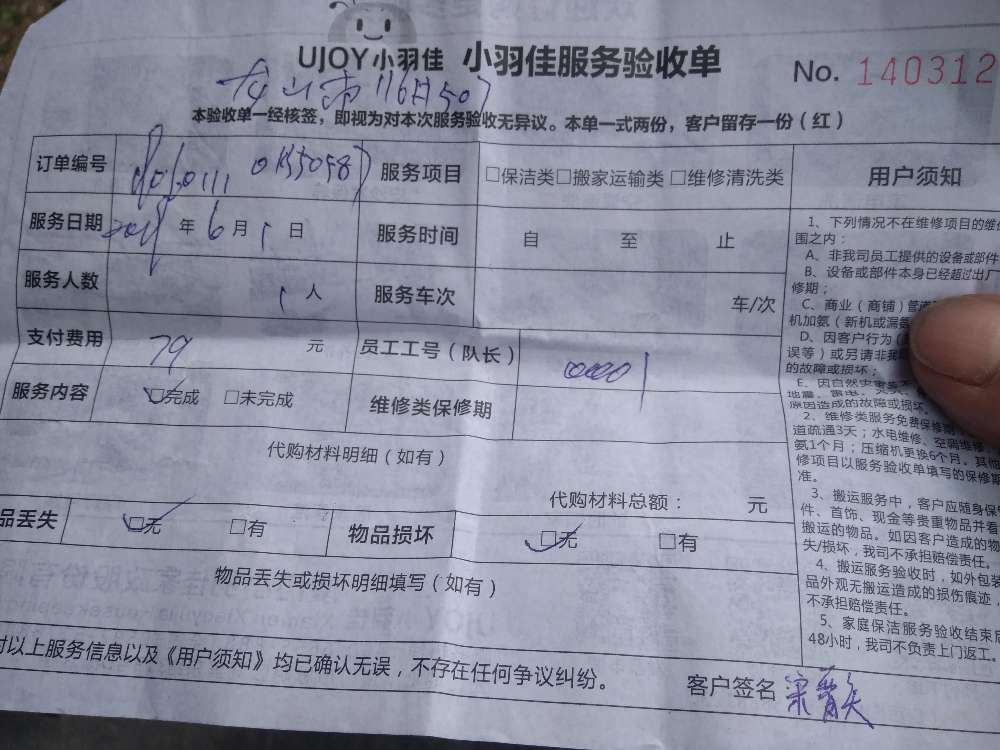 UJOY小羽佳 小羽佳服务验收单 No. 140312
116 507
本验收单一经核签，即视为对本次服务验收无异议。本单一式两份，客户留存一份（红）
订单编号 服务项目 □保洁类□搬家运输类□维修清洗类
服务日期 年 6 月 1 日 服务时间 自 至 止
服务人数 1 人 服务车次 车/次
支付费用 79 元 员工工号（队长） 00001
服务内容 □完成 □未完成 维修类保修期
代购材料明细（如有）
代购材料总额： 元
品丢失 □无 □有 物品损坏 □无 □有
物品丢失或损坏明细填写（如有）
对以上服务信息以及《用户须知》均已确认无误，不存在任何争议纠纷。
客户签名
用户须知
1、下列情况不在维修项目的维修
围之内：
A、非我司员工提供的设备或部件
B、设备或部件本身已经超过出厂
修期；
C、商业（商铺）管道
机加氨（新机或漏氨
D、因客户行为
误等）或另请非我
的故障或损坏；
E、因自然灾害
地震、雷电、
原因造成的故障或损坏。
2、维修类服务免费保修期
道疏通3天；水电维修、空调维修、
氨1个月；压缩机更换6个月。其他
修项目以服务验收单填写的保修期
准。
3、搬运服务中，客户应随身保管
件、首饰、现金等贵重物品并看
搬运的物品。如因客户造成的物
失/损坏，我司不承担赔偿责任。
4、搬运服务验收时，如外包装
品外观无搬运造成的损伤痕迹，
不承担赔偿责任。
5、家庭保洁服务验收结束后
48小时，我司不负责上门返工。